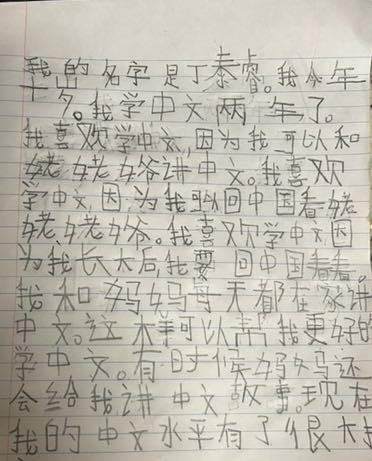 我的名字是丁泰睿。我今年
十岁。我学中文两年了。
我喜欢学中文，因为我可以和
姥姥姥爷讲中文。我喜欢
学中文，因为我可以回中国看姥
姥姥爷。我喜欢学中文因
为我长大后，我要回中国看看。
我和妈妈每天都在家讲
中文。这样可以帮我更好的
学中文。有时候妈妈还
会给我讲中文故事。现在
我的中文水平有了很大